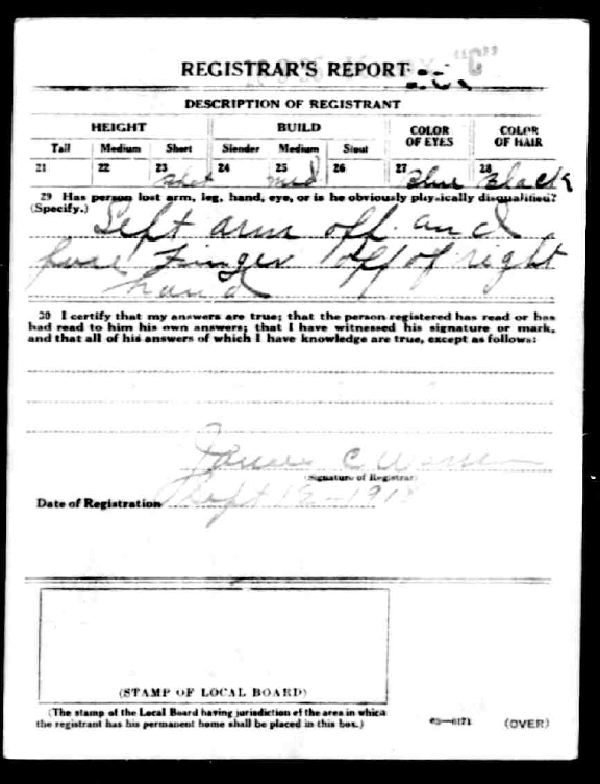 "C"
REGISTRAR'S REPORT
DESCRIPTION OF REGISTRANT
HEIGHT BUILD COLOR OF EYES COLOR OF HAIR
Tall Medium Short Slender Medium Stout
21 22 23 24 25 26 27 28
Short Med Blue Black
29 Has person lost arm, leg, hand, eye, or is he obviously physically disqualified?
(Specify.) Left arm off and
fore Finger off of right
hand
30 I certify that my answers are true; that the person registered has read or has
had read to him his own answers; that I have witnessed his signature or mark,
and that all of his answers of which I have knowledge are true, except as follows:
James C
(Signature of Registrar)
Date of Registration Sept 12-1918
(STAMP OF LOCAL BOARD)
(The stamp of the Local Board having jurisdiction of the area in which
the registrant has his permanent home shall be placed in this box.)
03—6171 (OVER)